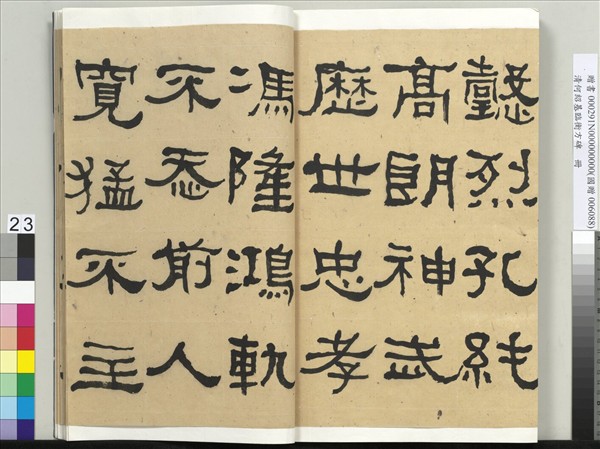 懿烈孔純
高朗神武
歷世忠孝
馮隆鴻軌
不忝前人
寬猛不主
贈書 000291N000000000(國贈 006088)
清何紹基臨衡方碑 冊
23